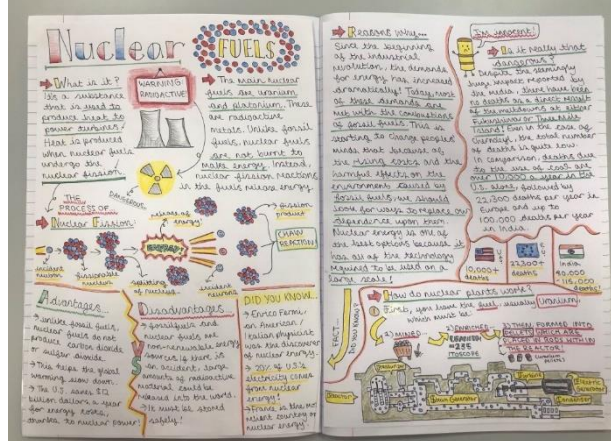 Nuclear
FUELS
What is it?
It's a substance
that is used to
produce heat to
power turbines!
Heat is produced
when nuclear fuels
undergo the
nuclear fission.
WARNING!
RADIOACTIVE!
DANGEROUS
The main nuclear
fuels are uranium
and plutonium. These
are radioactive
metals. Unlike fossil
fuels, nuclear fuels
are not burnt to
make energy. Instead,
nuclear fission reactions
in the fuels release energy.
THE
PROCESS OF
Nuclear Fission:
release of
energy!
fission
product
ENERGY!
CHAIN
REACTION
incident
neutron
fissionable
nucleus
splitting
of nucleus
incident
neutrons
Advantages...
Unlike fossil fuels,
nuclear fuels do not
produce carbon dioxide
or sulfur dioxide.
This helps the global
warming slow down.
The U.S. saves $12
billion dollars a year
for energy costs,
thanks to nuclear power!
VS
Disadvantages...
fossil fuels and
nuclear fuels are
non-renewable energy
sources. If there is
an accident, large
amounts of radioactive
material could be
released into the world.
It must be stored
safely!
DID YOU KNOW...
Enrico Fermi,
an American/
Italian physicist
was the discoverer
of nuclear energy.
20% of U.S.'s
electricity comes
from nuclear
energy!
France is the most
reliant country on
nuclear energy!
Reasons Why...
Since the beginning
of the industrial
revolution, the demands
for energy has increased
dramatically! Today, most
of these demands are
met with the combustion
of fossil fuels. This is
starting to change people's
minds that because of
the rising costs and the
harmful effects on the
environment caused by
fossil fuels, we should
look for ways to replace our
dependence upon them.
Nuclear energy is one of
the best options because it
has all of the technology
required to be used on a
large scale!
I'm innocent!
Is it really that
dangerous?
Despite the seemingly
huge impact reported by
the media, there have been
no deaths as a direct result
of the meltdowns at either
Fukushima or Three Mile
Island! Even in the case of
Chernobyl, the total number
of deaths is quite low.
In comparison, deaths due
to the use of coal are
over 10,000 a year in the
U.S. alone, followed by
22,300 deaths per year in
Europe and up to
100,000 deaths per year
in India.
US
10,000+
deaths
EU
22,300+
deaths
India
115,000
deaths
FACT...
DID YOU KNOW?
How do nuclear plants work?
First, you have the fuel, usually Uranium,
which must be:
1) MINED
2) ENRICHED
URANIUM
#235
ISOTOPE
3) THEN FORMED INTO
PELLETS WHICH ARE
PLACED IN RODS WITHIN
THE REACTOR
Reactor
Steam Generator
Turbine
Electric
Generator
Condenser